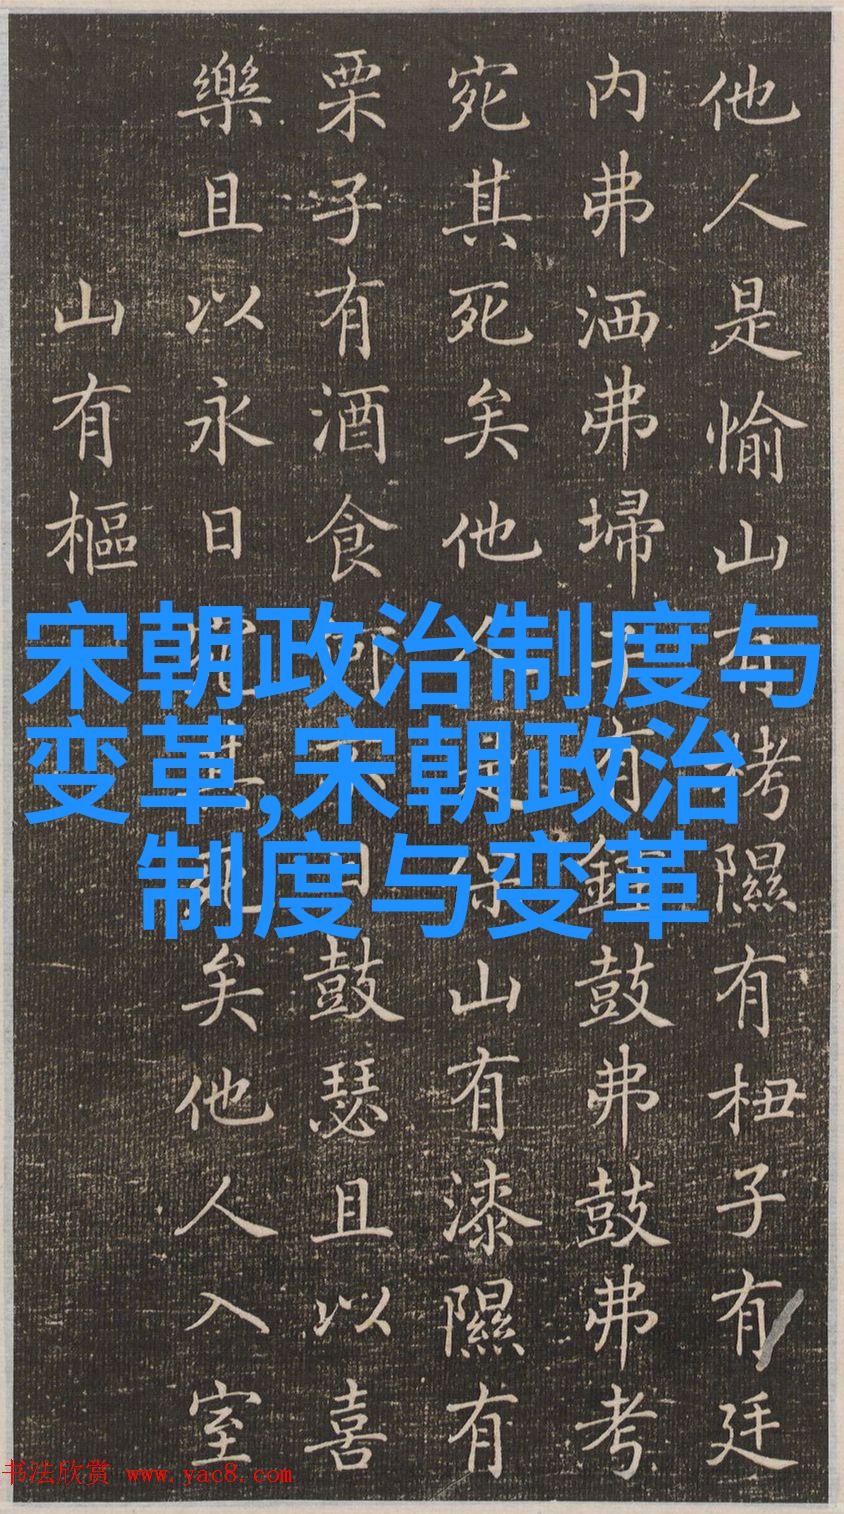 他人是愉山有栲隰有杻子有廷
内弗洒弗埽子有鍾鼓弗鼓弗考
宛其死矣他人是保山有漆隰有
栗子有酒食何不日鼓瑟且以喜
樂且以永日宛其死矣他人入室
山有樞
宋朝政治制度与
变革,宋朝政治
制度与变革
书法欣赏 www.yac8.com